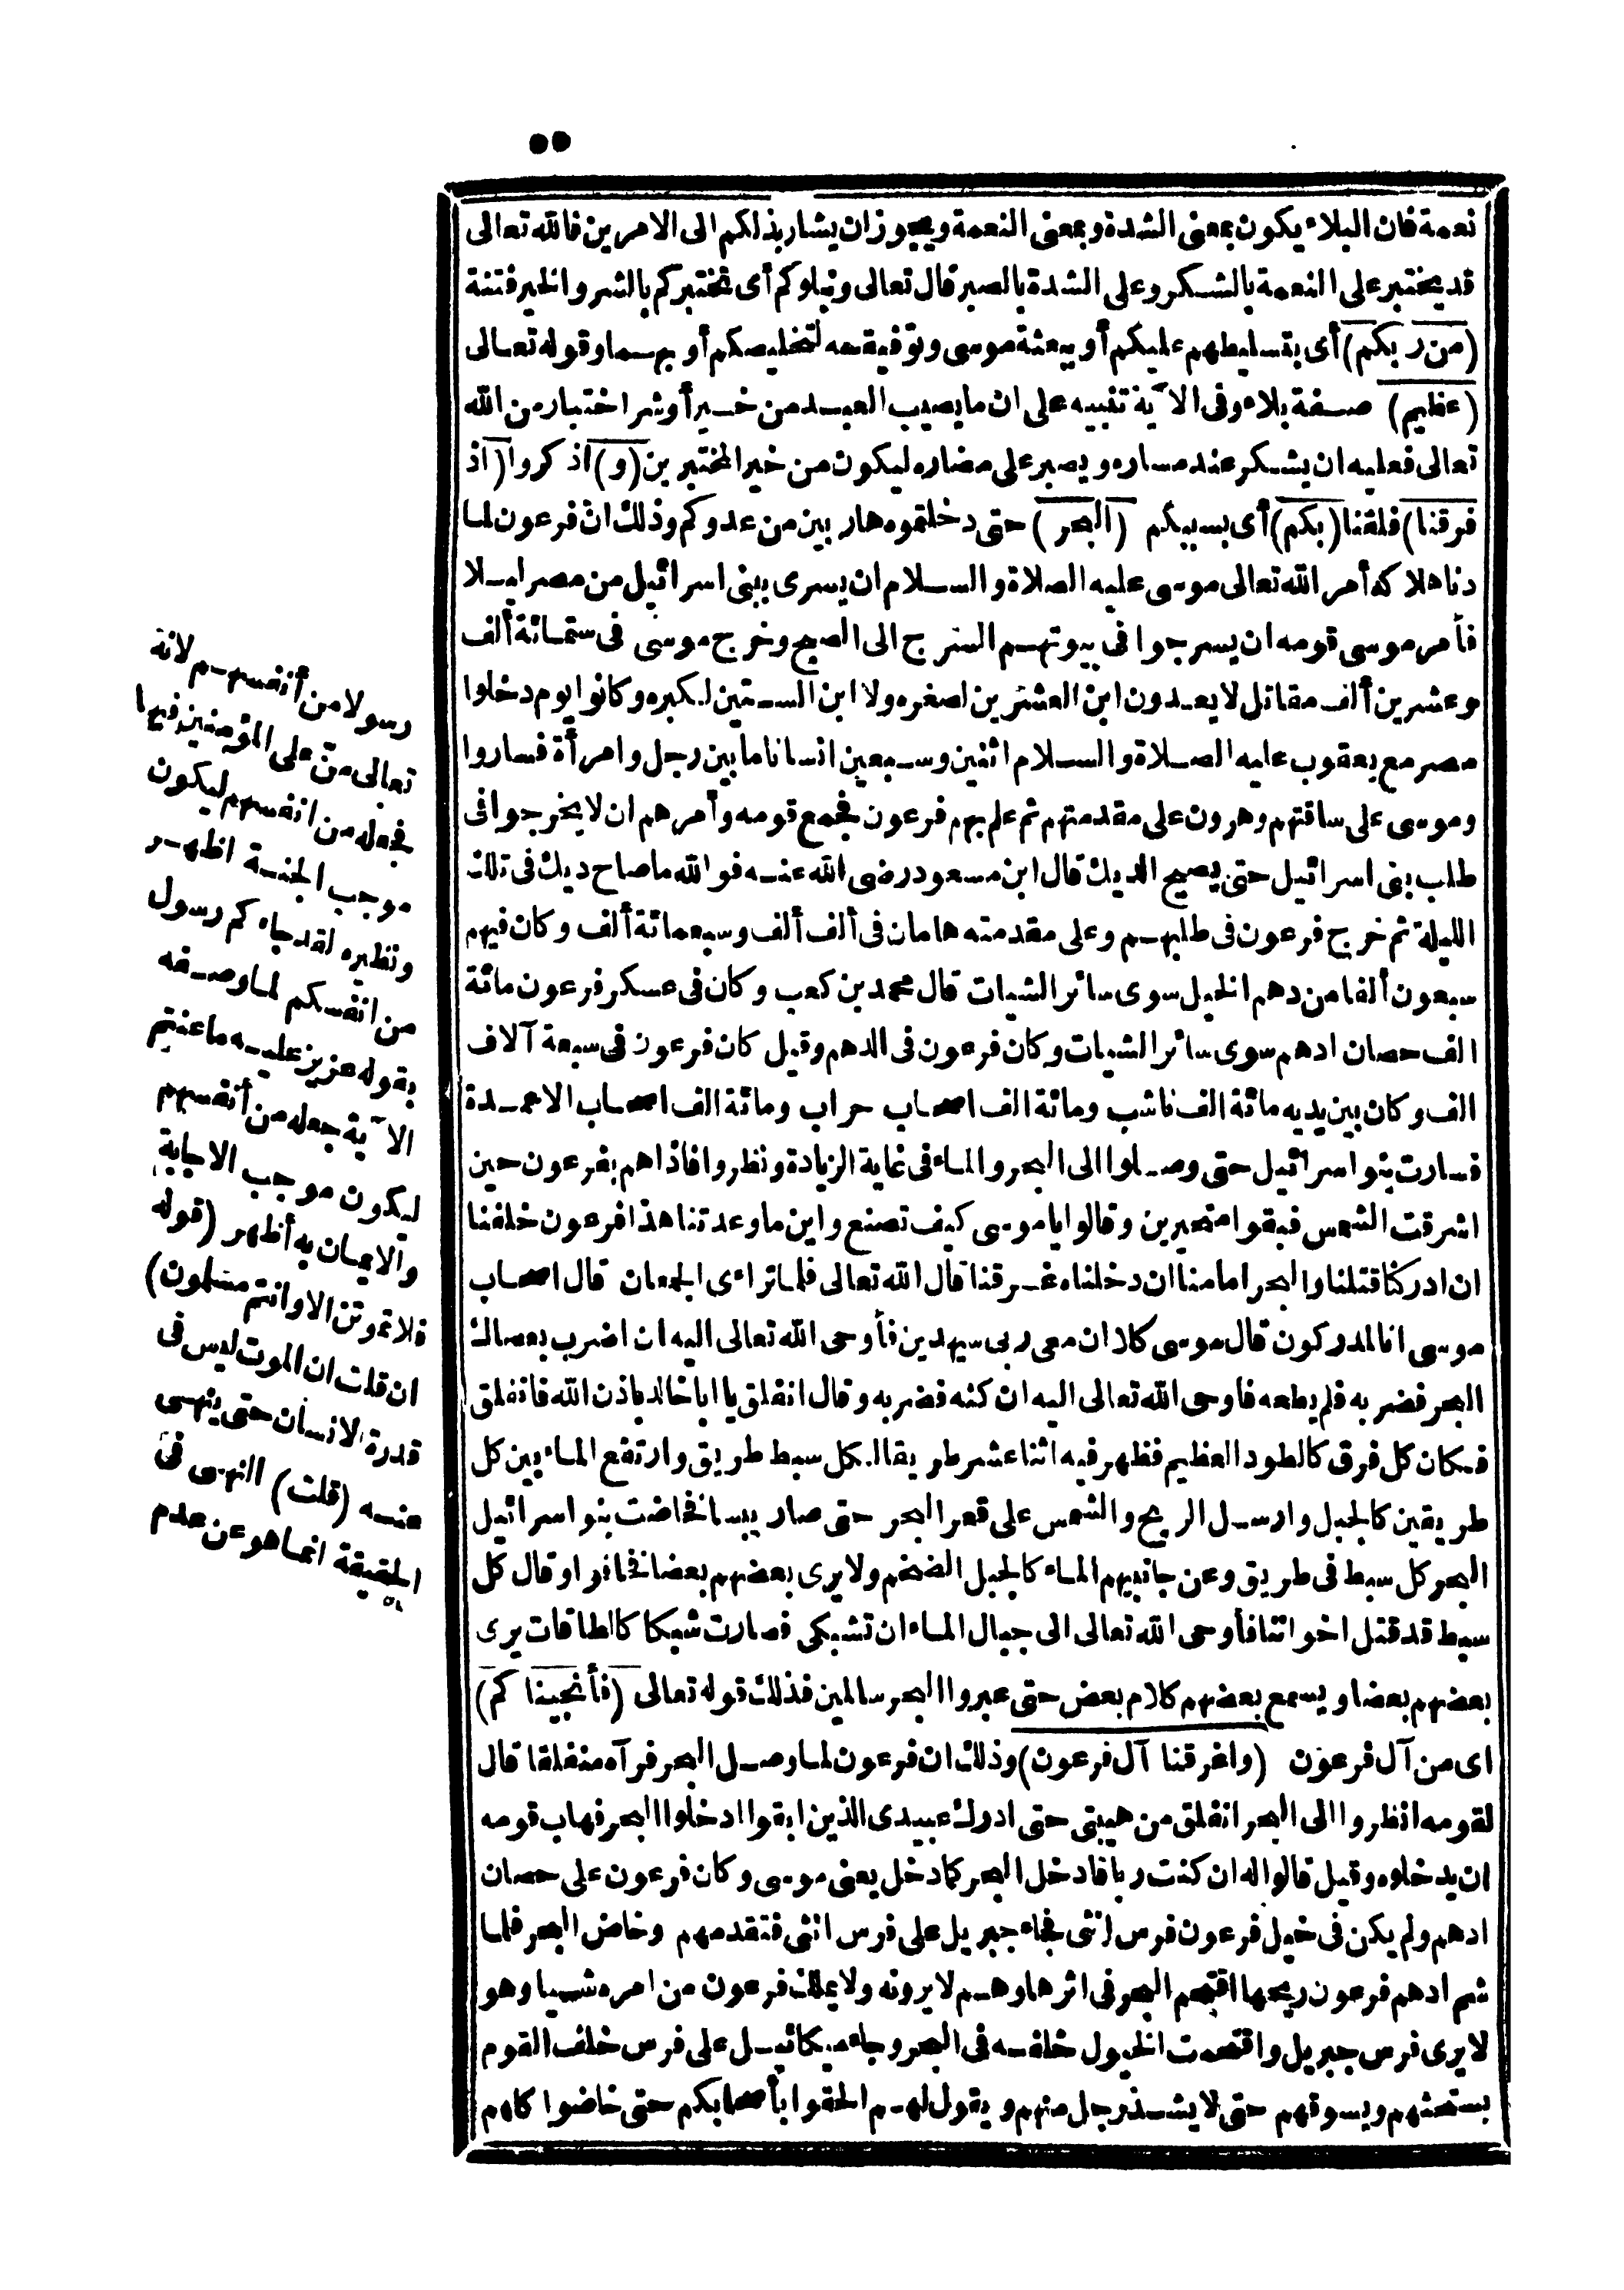 ٥٥
نعمة فان البلاء يكون بمعنى الشدة وبمعنى النعمة ويجوز ان يشار بذلكم الى الامرين فالله تعالى
قد يختبر على النعمة بالشكر وعلى الشدة بالصبر قال تعالى ونبلوكم أى نختبركم بالشر والخير فتنة
(من ربكم) أى بتسليطهم عليكم أو ببعثة موسى وتوفيقه لتخليصكم أو بهما وقوله تعالى
(عظيم) صفة بلاء وفى الآية تنبيه على ان ما يصيب العبد من خير أو شر اختبار من الله
تعالى فعليه ان يشكر عند مساره ويصبر على مضاره ليكون من خير المختبرين (و) اذكروا (اذ
فرقنا) فلقنا (بكم) أى بسببكم (البحر) حتى دخلتموه هاربين من عدوكم وذلك انّ فرعون لما
دنا هلاكه أمر الله تعالى موسى عليه الصلاة والسلام ان يسرى ببنى اسرائيل من مصر ليلا
فأمر موسى قومه ان يسرجوا فى بيوتهم السرج الى الصبح وخرج موسى فى ستمائة ألف
وعشرين ألف مقاتل لا يعدون ابن العشرين لصغره ولا ابن الستين لكبره وكانوا يوم دخلوا
مصر مع يعقوب عليه الصلاة والسلام اثنين وسبعين انسانا ما بين رجل وامرأة فساروا
وموسى على ساقتهم وهرون على مقدمتهم ثم علم بهم فرعون فجمع قومه وأمرهم ان لا يخرجوا فى
طلب بنى اسرائيل حتى يصيح الديك قال ابن مسعود رضى الله عنه فوالله ما صاح ديك فى تلك
الليلة ثم خرج فرعون فى طلبهم وعلى مقدمته هامان فى ألف ألف وسبعمائة ألف وكان فيهم
سبعون ألفا من دهم الخيل سوى سائر الشيات قال محمد بن كعب وكان فى عسكر فرعون مائة
الف حصان ادهم سوى سائر الشيات وكان فرعون فى الدهم وقيل كان فرعون فى سبعة آلاف
الف وكان بين يديه مائة الف ناشب ومائة الف اصحاب حراب ومائة الف اصحاب الاعمدة
فسارت بنو اسرائيل حتى وصلوا الى البحر والماء فى غاية الزيادة ونظروا فاذا هم بفرعون حين
اشرقت الشمس فبقوا متحيرين وقالوا يا موسى كيف نصنع واين ما وعدتنا هذا فرعون خلفنا
ان ادركنا قتلنا والبحر امامنا ان دخلناه غرقنا قال الله تعالى فلما تراءى الجمعان قال اصحاب
موسى انا لمدركون قال موسى كلا ان معى ربى سيهدين فأوحى الله تعالى اليه ان اضرب بعصاك
البحر فضربه فلم يطعه فاوحى الله تعالى اليه ان كنه فضربه وقال انفلق يا ابا خالد باذن الله فانفلق
فكان كل فرق كالطود العظيم فظهر فيه اثنا عشر طريقا لكل سبط طريق وارتفع الماء بين كل
طريقين كالجبل وارسل الريح والشمس على قعر البحر حتى صار يبسا فخاضت بنو اسرائيل
البحر كل سبط فى طريق وعن جانبيهم الماء كالجبل الضخم ولا يرى بعضهم بعضا فخافوا وقال كل
سبط قد قتل اخواننا فأوحى الله تعالى الى جبال الماء ان تشبكى فصارت شبكا كالطاقات يرى
بعضهم بعضا ويسمع بعضهم كلام بعض حتى عبروا البحر سالمين فذلك قوله تعالى (فأنجيناكم)
اى من آل فرعون (واغرقنا آل فرعون) وذلك ان فرعون لما وصل البحر فرآه منفلقا قال
لقومه انظروا الى البحر انفلق من هيبتى حتى ادرك عبيدى الذين ابقوا ادخلوا البحر فهاب قومه
ان يدخلوه وقيل قالوا له ان كنت ربا فادخل البحر كما دخل يعنى موسى وكان فرعون على حصان
ادهم ولم يكن فى خيل فرعون فرس انثى فجاء جبريل على فرس انثى فتقدمهم وخاض البحر فلما
شم ادهم فرعون ريحها اقتحم البحر فى اثرها وهم لا يرونه ولا يملك فرعون من امره شيا وهو
لا يرى فرس جبريل واقتحمت الخيول خلفه فى البحر وجاء ميكائيل على فرس خلف القوم
يستحثهم ويسوقهم حتى لا يشذ رجل منهم ويقول لهم الحقوا بأصحابكم حتى خاضوا كلهم
رسولا من أنفسهم لانه
تعالى منّ على المؤمنين فيها
فجعله من انفسهم ليكون
موجب الجنسة اظهر
ونظيره لقد جاءكم رسول
من انفسكم لما وصفه
بقوله عزيز عليه ما عنتم
الآية جعله من أنفسهم
ليكون موجب الاجابة
والايمان به أظهر (قوله
فلا تموتن الا وانتم مسلمون)
ان قلت ان الموت ليس فى
قدرة الانسان حتى ينهى
عنه (قلت) النهى فى
الحقيقة انما هو عن عدم